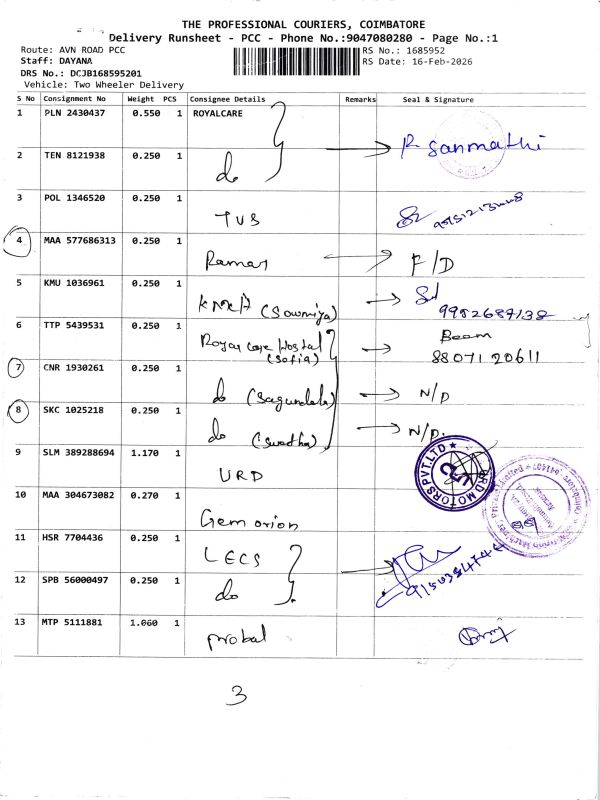 THE PROFESSIONAL COURIERS, COIMBATORE
Delivery Runsheet - PCC - Phone No.:9047080280 - Page No.:1
Route: AVN ROAD PCC
RS No.: 1685952
Staff: DAYANA
RS Date: 16-Feb-2026
DRS No.: DCJB168595201
Vehicle: Two Wheeler Delivery
S No Consignment No Weight PCS Consignee Details Remarks Seal & Signature
1 PLN 2430437 0.550 1 ROYALCARE
R Sanmathi
2 TEN 8121938 0.250 1
do
3 POL 1346520 0.250 1
TVS
4 MAA 577686313 0.250 1
Raman F/D
5 KMU 1036961 0.250 1
KMCH (Sowmiya)
6 TTP 5439531 0.250 1
Royal care Hostal (Sofia)
88071 20611
7 CNR 1930261 0.250 1
do N/D
8 SKC 1025218 0.250 1
do (Swetha) N/D.
9 SLM 389288694 1.170 1
URD
MOTORS PVT.LTD
10 MAA 304673082 0.270 1
Gem orion
11 HSR 7704436 0.250 1
LECS
12 SPB 56000497 0.250 1
do
13 MTP 5111881 1.060 1
probal
3